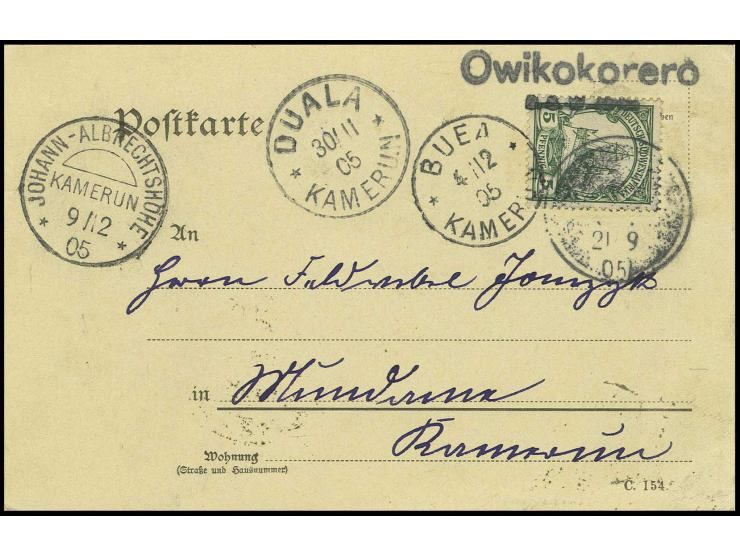 Owikokorero
Postkarte
DUALA
30/11
05
KAMERUN
BUEA
4/12
05
KAMERUN
JOHANN-ALBRECHTSHÖHE
KAMERUN
9/12
05
5
PFENNIG
5
DEUTSCH-SÜDWESTAFRIKA
21 9
05
An
Herrn Feldwebel
in Mundame
Kamerun
Wohnung
(Straße und Hausnummer)
C. 154.